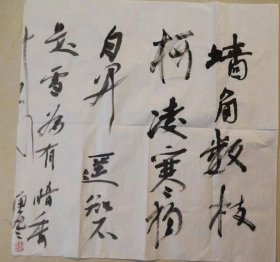 墙角数枝
梅凌寒独
自开遥知不
是雪为有暗香
来